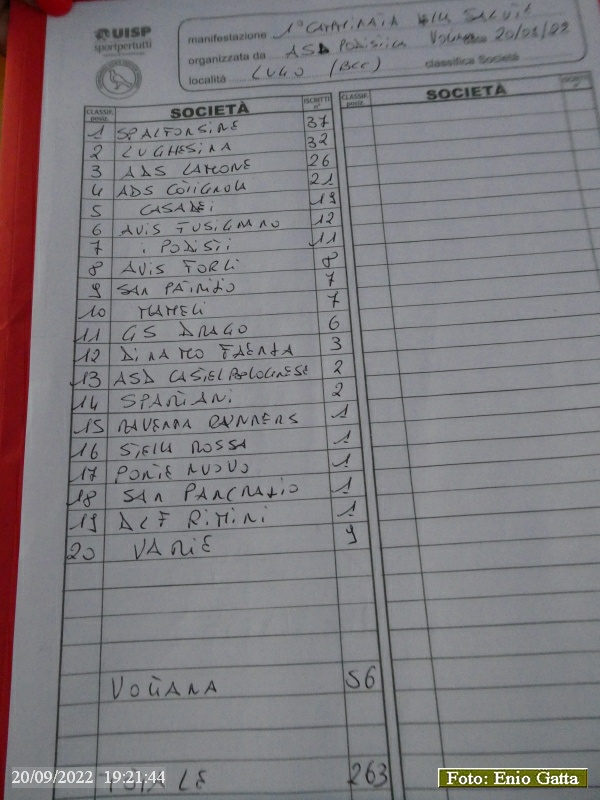 UISP
sportpertutti
manifestazione 1° CAMMINATA
organizzata da ASD PODISTICA VOLTANA 20/09/22
località LUGO (BCC) classifica Società
CLASSIF. posiz. SOCIETÀ ISCRITTI n° CLASSIF. posiz. SOCIETÀ ISCRITTI n°
1 SPALFONSINE 37
2 LUGHESINA 32
3 ADS LAMONE 26
4 ADS COTIGNOLA 21
5 CASADEI 19
6 AVIS FUSIGNANO 12
7 PODISTI 11
8 AVIS FORLI 8
9 SAN PATRIZIO 7
10 MAMELI 7
11 GS DRAGO 6
12 DINAMO FAENZA 3
13 ASD CASTELBOLOGNESE 2
14 SPARTANI 2
15 RAVENNA RUNNERS 1
16 STELLA ROSSA 1
17 PONTE NUOVO 1
18 SAN PANCRAZIO 1
19 DLF RIMINI 1
20 VARIE 9
VOLTANA 56
TOTALE 263
20/09/2022 19:21:44
Foto: Enio Gatta